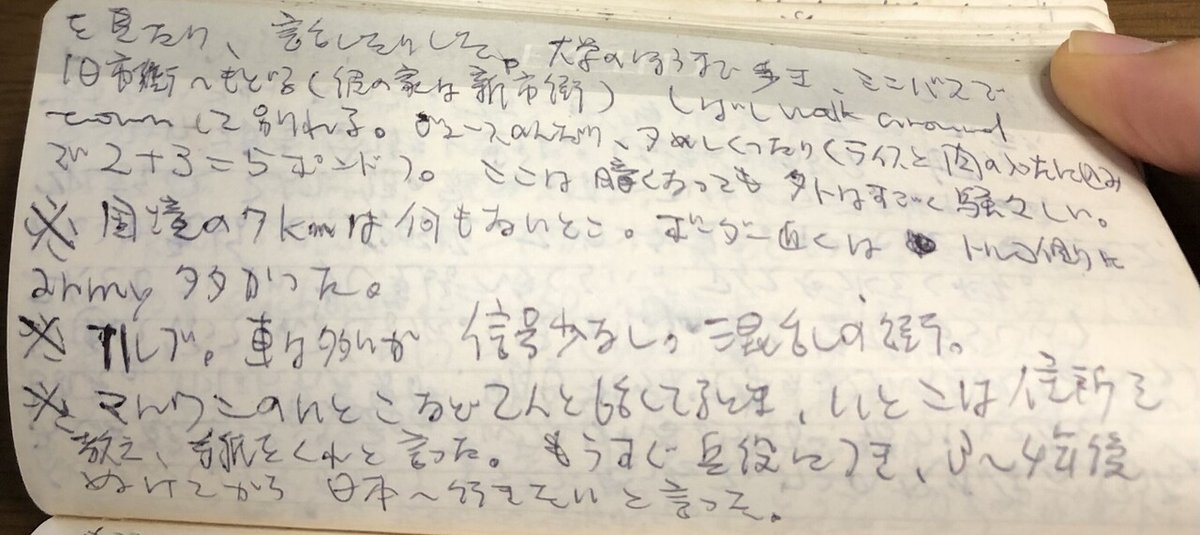 を見たり、話したりして。大学のほうまで歩き、ミニバスで
旧市街へもどる(彼の家は新市街) しばしwalk around
townして別れる。ジュースのんだり、夕めしくったり(ライスと肉の
で2+3=5ポンド)。ここは暗くなっても外はすごく騒々しい。
※ 国境の7kmは何もないとこ。ボーダー近くは トルコ側に
army多かった。
※ アレプ。車は多いが 信号少なし。混乱の街。
※ のいとこ 話してるとき、いとこは住所を
教え、手紙をくれと言った。もうすぐ兵役につき、3〜4年後
ぬけてから 日本へ行きたいと言った。